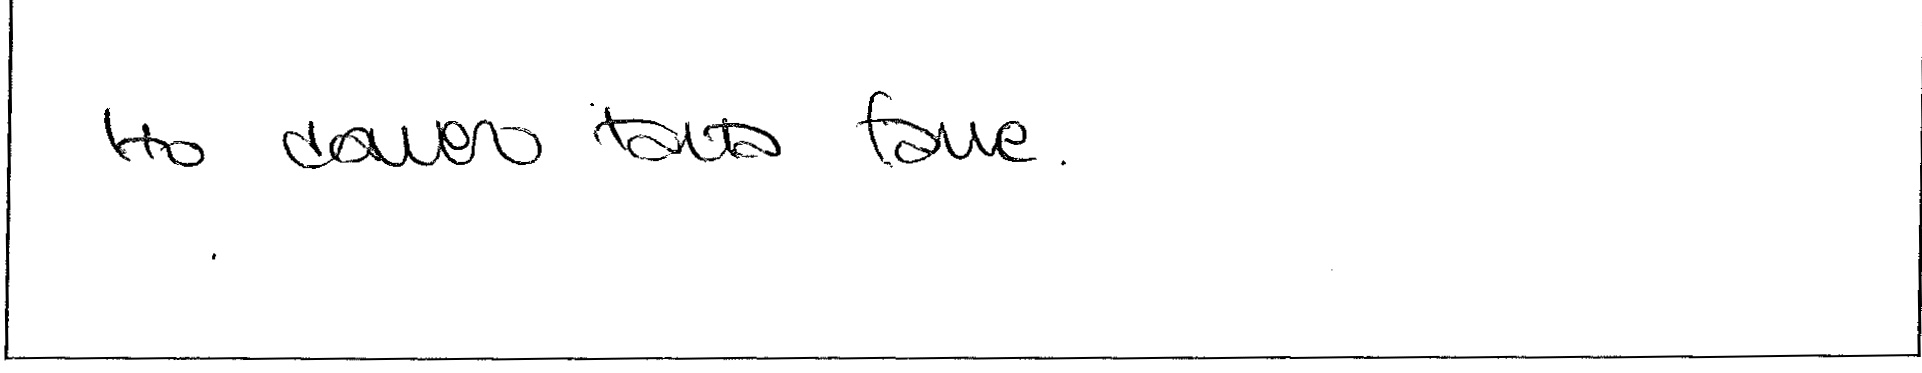 Ho davero tanta fame.